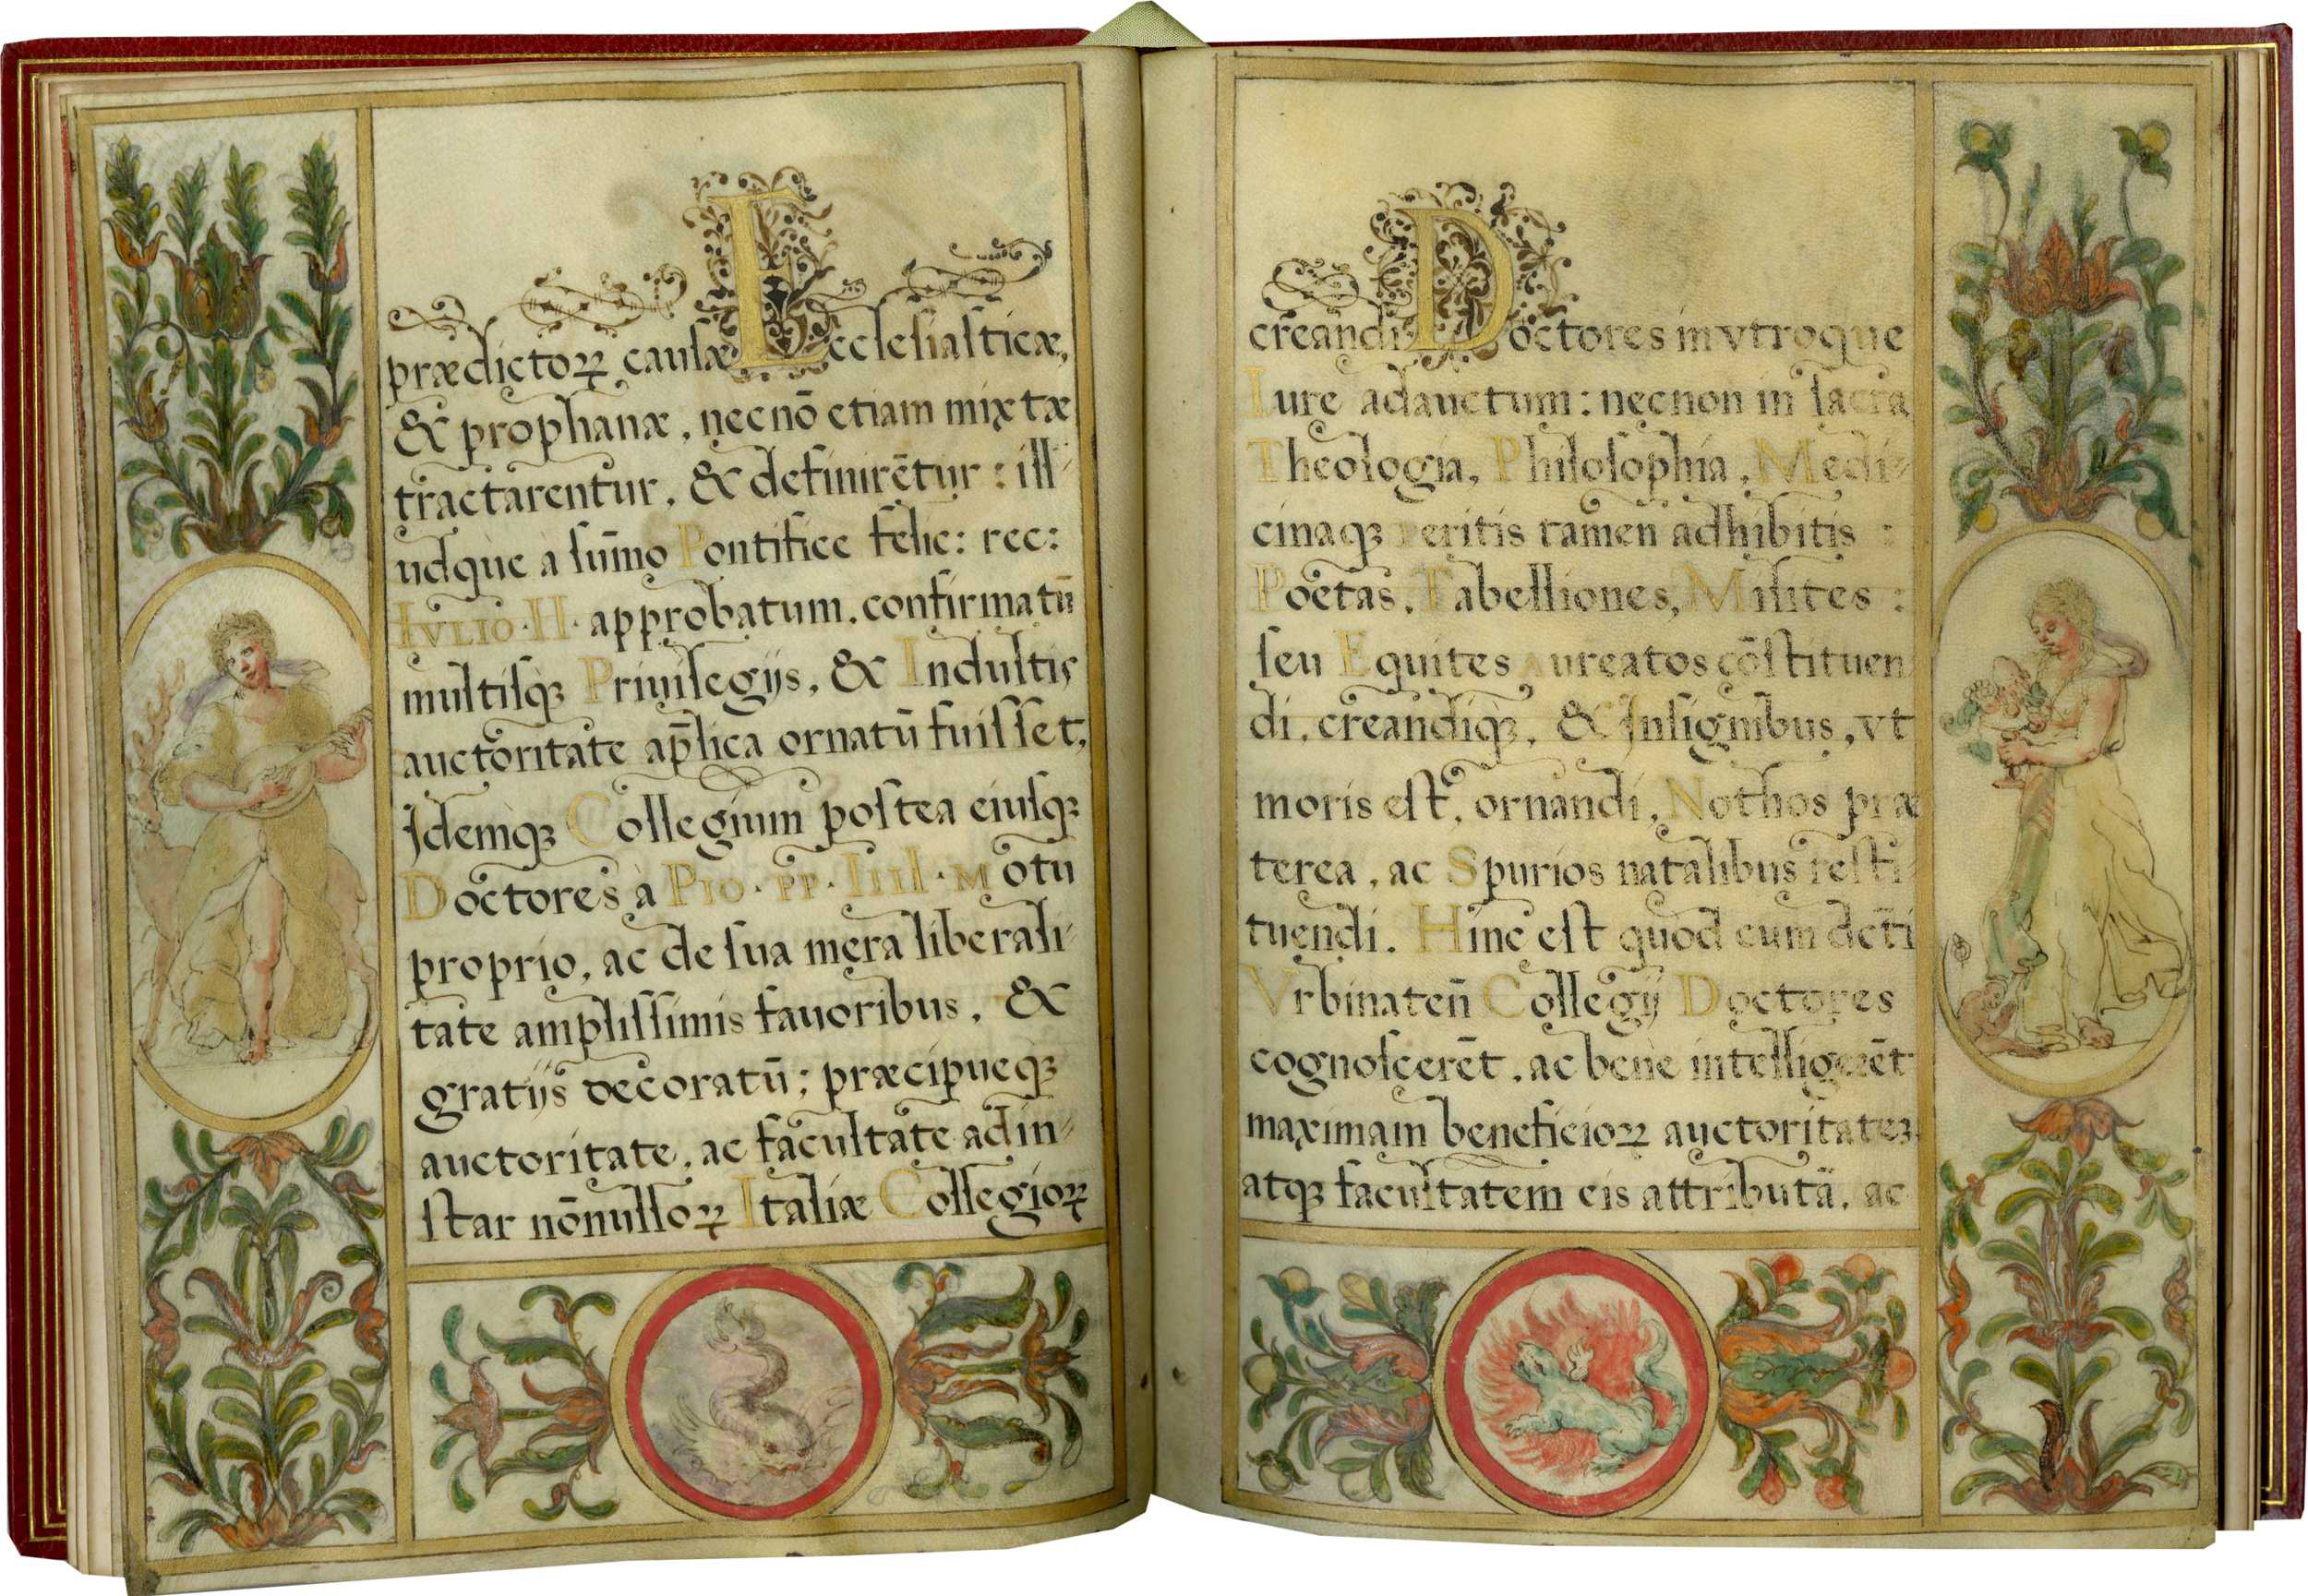 prædictoꝝ causæ Ecclesiasticæ,
& prophanæ, necnō etiam mixtæ
tractarentur, & definirētur: ill-
udque à sūmo Pontifice felic: rec:
IVLIO·II· approbatum, confirmatū
multisq; Priuilegijs, & Indultis
auctoritate ap̄lica ornatū fuisset,
Idemq; Collegium postea eiusq;
Doctores à PIO·PP·IIII·Motu
proprio, ac de sua mera liberali-
tate amplissimis fauoribus, &
gratijs decoratū; præcipueq;
auctoritate, ac facultate adin-
star nōnulloꝝ Italiæ Collegioꝝ
creandi Doctores in vtroque
Iure adauctum: necnon in sacra
Theologia, Philosophia, Medi-
cinaq; peritis tamen adhibitis:
Poetas, Tabelliones, Milites:
seu Equites Aureatos cōstituen
di, creandiq;, & Insignibus, vt
moris est, ornandi, Nothos præ
terea, ac Spurios natalibus resti-
tuendi. Hinc est quod cum dc̄ti
Vrbinaten̄ Collegij Doctores
cognoscerēt, ac bene intelligerēt
maximam beneficioꝝ auctoritateꝫ,
atq; facultatem eis attributā, ac